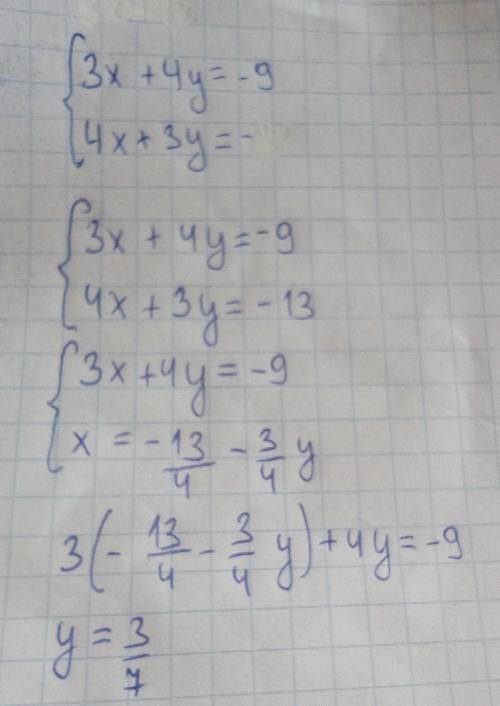 {3x + 4y = -9
{4x + 3y = -
{3x + 4y = -9
{4x + 3y = -13
{3x + 4y = -9
{x = -13/4 - 3/4 y
3(-13/4 - 3/4 y) + 4y = -9
y = 3/7